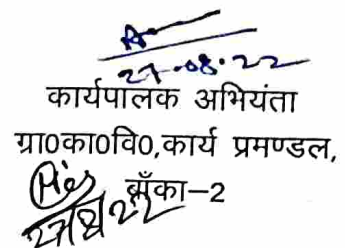 27.08.22
कार्यपालक अभियंता
ग्रा0का0वि0,कार्य प्रमण्डल,
बाँका–2
27/8/22